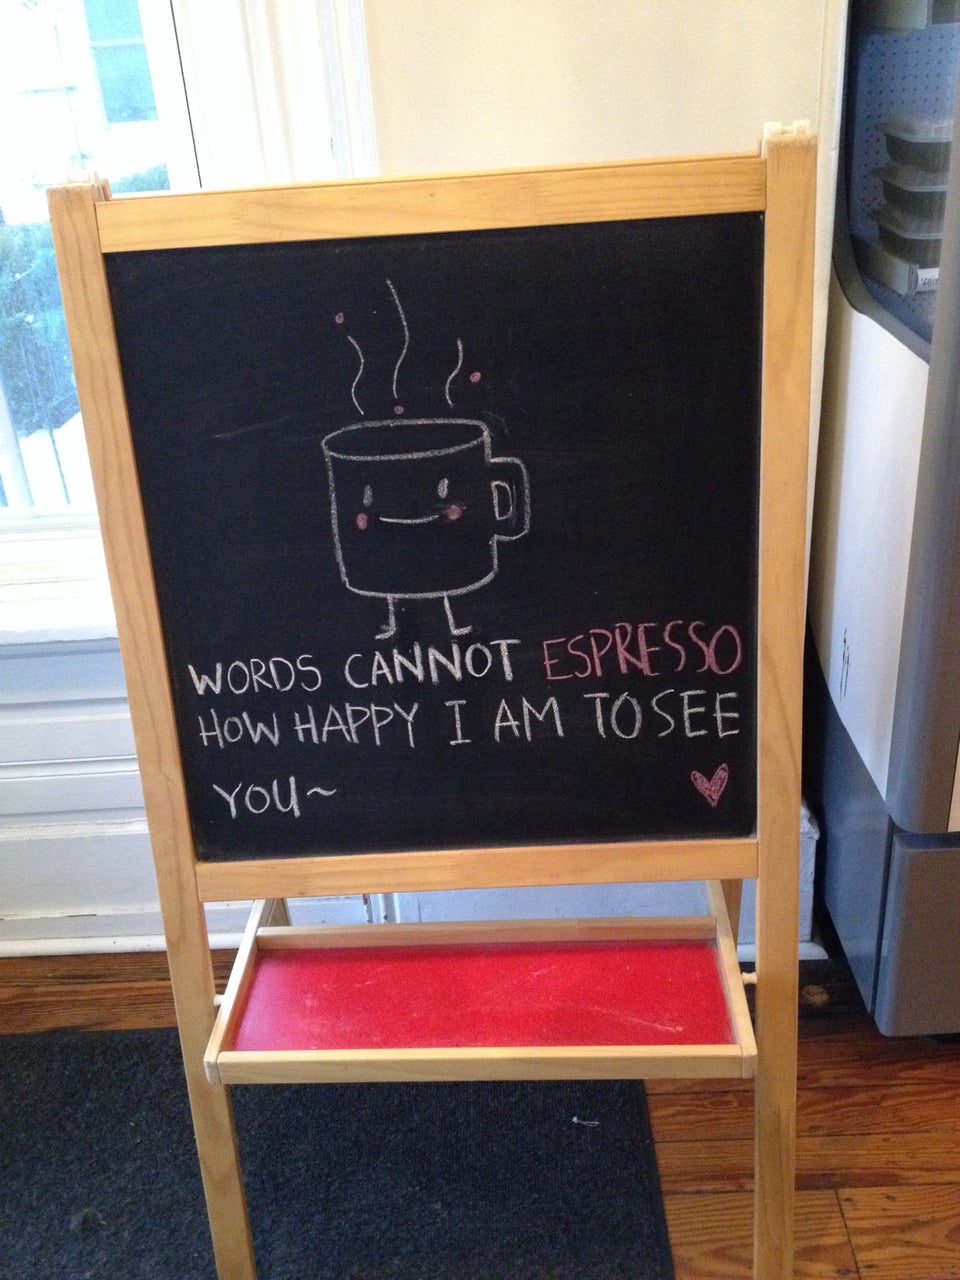 WORDS CANNOT ESPRESSO
HOW HAPPY I AM TO SEE
YOU~